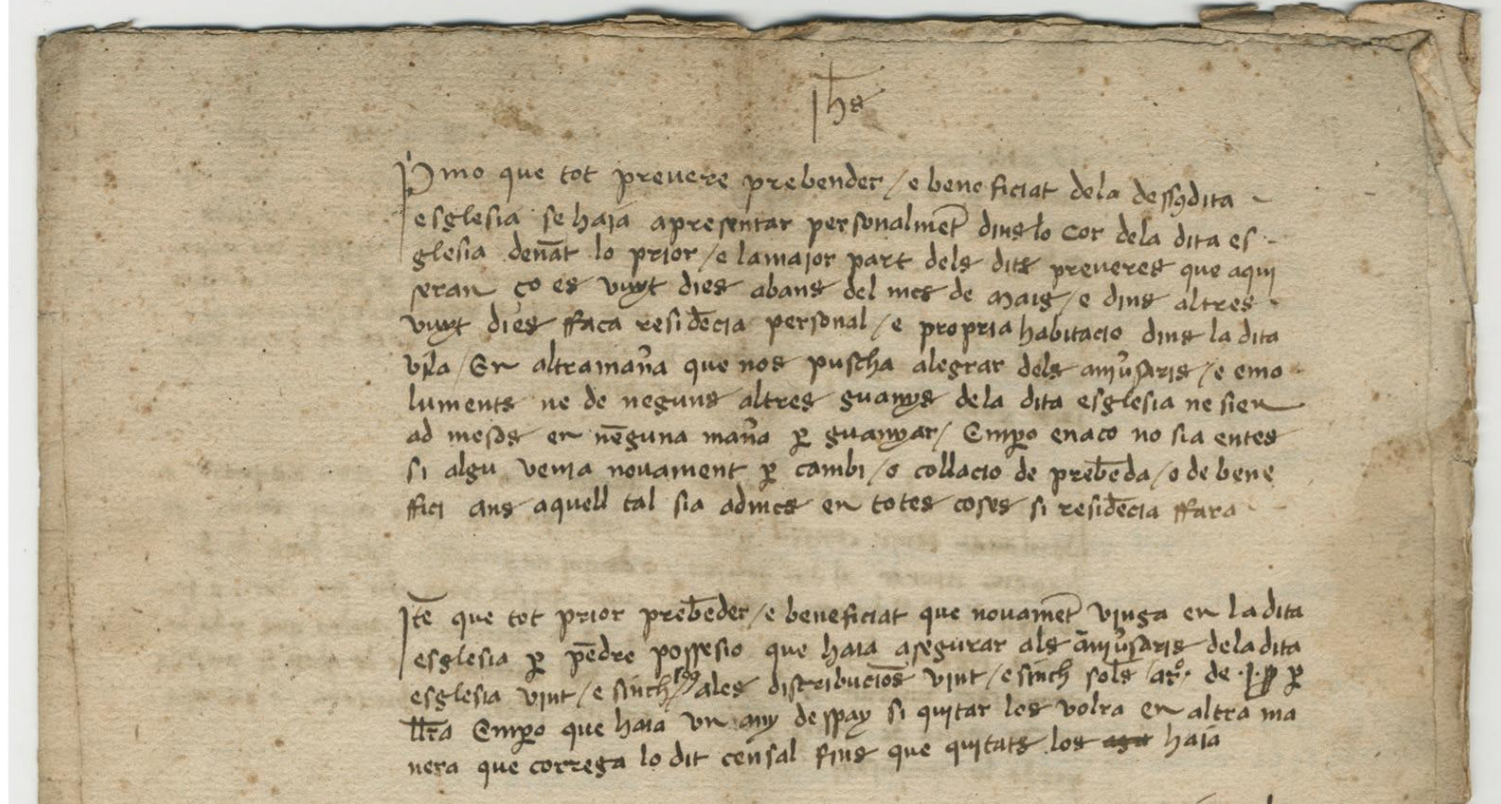 Jhs
Pmo que tot prevere prebender / e beneficiat dela dessqdita
esglesia se haia apresentar personalmet dins lo cor dela dita es
glesia denat lo prior / e la maior part dels dits preveres que aqui
seran ço es vuyt dies abans del mes de maig / e dins altres
vuyt dies ffaca residecia personal / e propria habitacio dins la dita
vila / En altra mana que nos puscha alegrar dels anivsaris / e emo
luments ne de neguns altres guanys dela dita esglesia ne sien
ad mesos en neguna mana p guanyar / Empo en aco no sia entes
si algu venia novament p cambi / o collacio de prebeda / o de bene
ffici ans aquell tal sia admes en totes coses si residecia ffara
Ite que tot prior prebeder / e beneficiat que novamet vinga en la dita
esglesia p pedre possesio que haia asegurar als anivsaris dela dita
esglesia vint / e sinch ales distribucios vint / e sinch sols de p
llra Empo que haia un any despay si quitar los volra en altra ma
nera que correga lo dit censal fins que quitats los haia